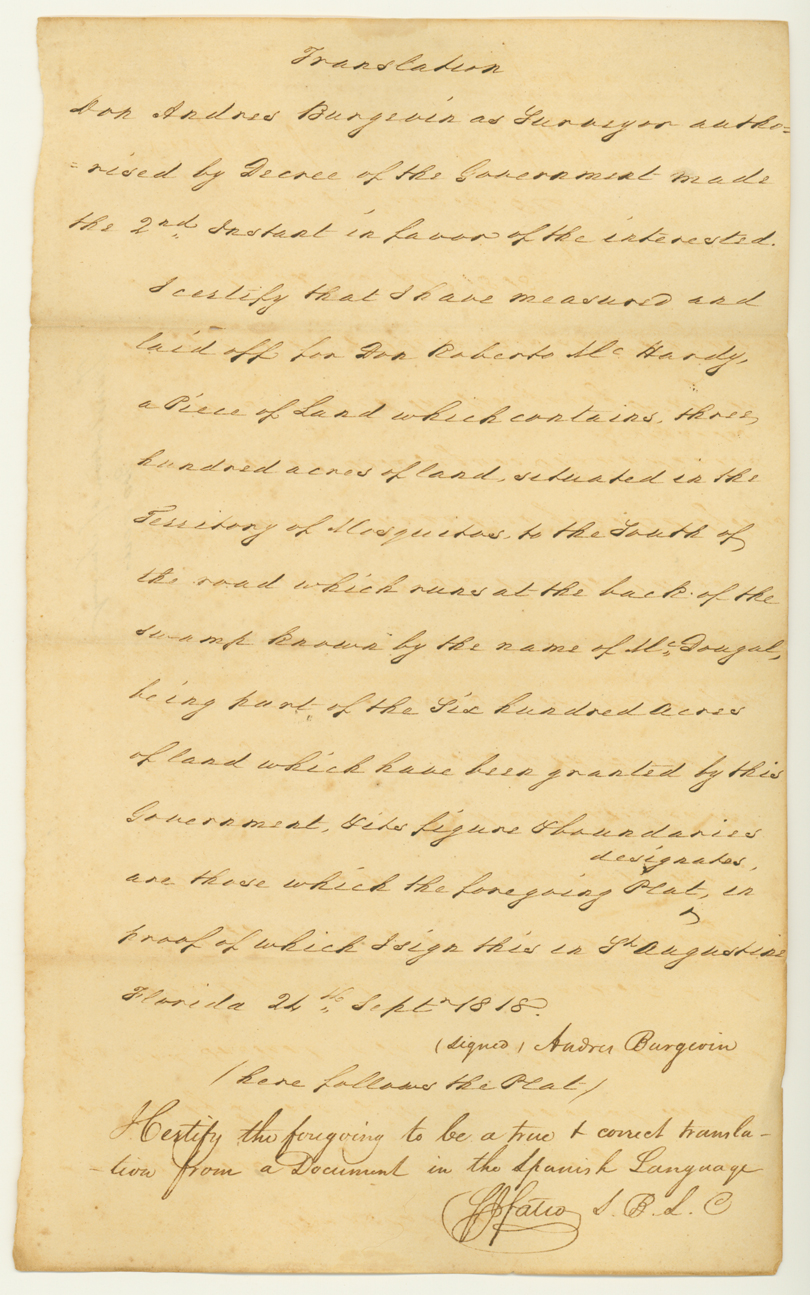 Translation
Don Andres Burgevin as Surveyor autho=
=rised by Decree of the Government made
the 2nd Instant in favor of the interested.
I certify that I have measured and
laid off for Don Roberto Mc Hardy,
a Piece of Land which contains, three
hundred acres of land, situated in the
Territory of Mosquitos, to the South of
the road which runs at the back of the
swamp known by the name of Mc Dougal,
being part, of the Six hundred Acres
of land which have been granted by this
Government, & its figure & boundaries
designates,
are those which the foregoing Plat, in
proof of which I sign this in St Augustine
Florida 24th Septr 1818.
(signed) Andres Burgevin
(here follows the Plat)
I Certify the foregoing to be a true & correct transla-
-tion from a Document in the Spanish Language
Fatio S. B. L. C